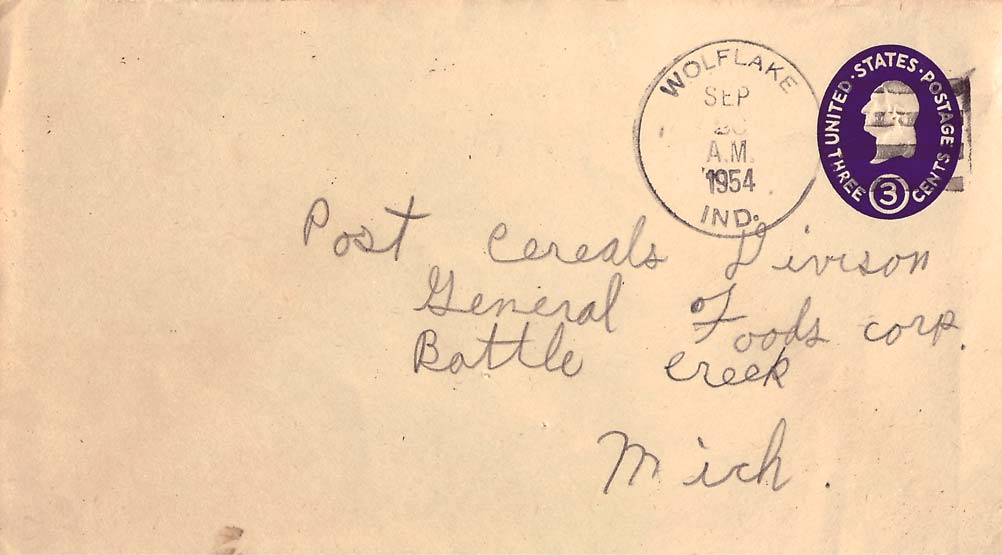 WOLFLAKE
SEP
A.M.
1954
IND.
UNITED·STATES·POSTAGE
THREE 3 CENTS
Post Cereals Divison
General Foods corp.
Battle Creek
Mich.